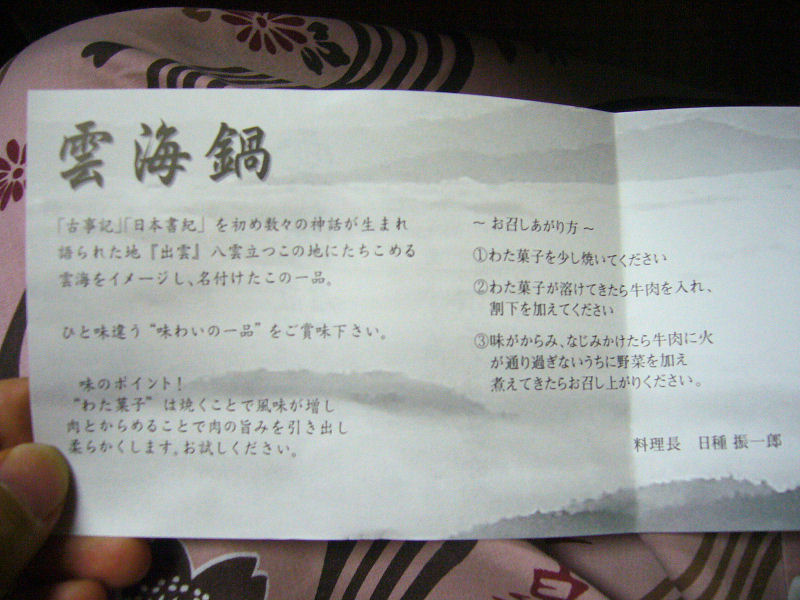 雲海鍋
「古事記」「日本書紀」を初め数々の神話が生まれ
語られた地『出雲』八雲立つこの地にたちこめる
雲海をイメージし、名付けたこの一品。
ひと味違う“味わいの一品”をご賞味下さい。
味のポイント！
“わた菓子”は焼くことで風味が増し
肉とからめることで肉の旨みを引き出し
柔らかくします。お試しください。
～ お召しあがり方 ～
①わた菓子を少し焼いてください
②わた菓子が溶けてきたら牛肉を入れ、
割下を加えてください
③味がからみ、なじみかけたら牛肉に火
が通り過ぎないうちに野菜を加え
煮えてきたらお召し上がりください。
料理長　日種 振一郎